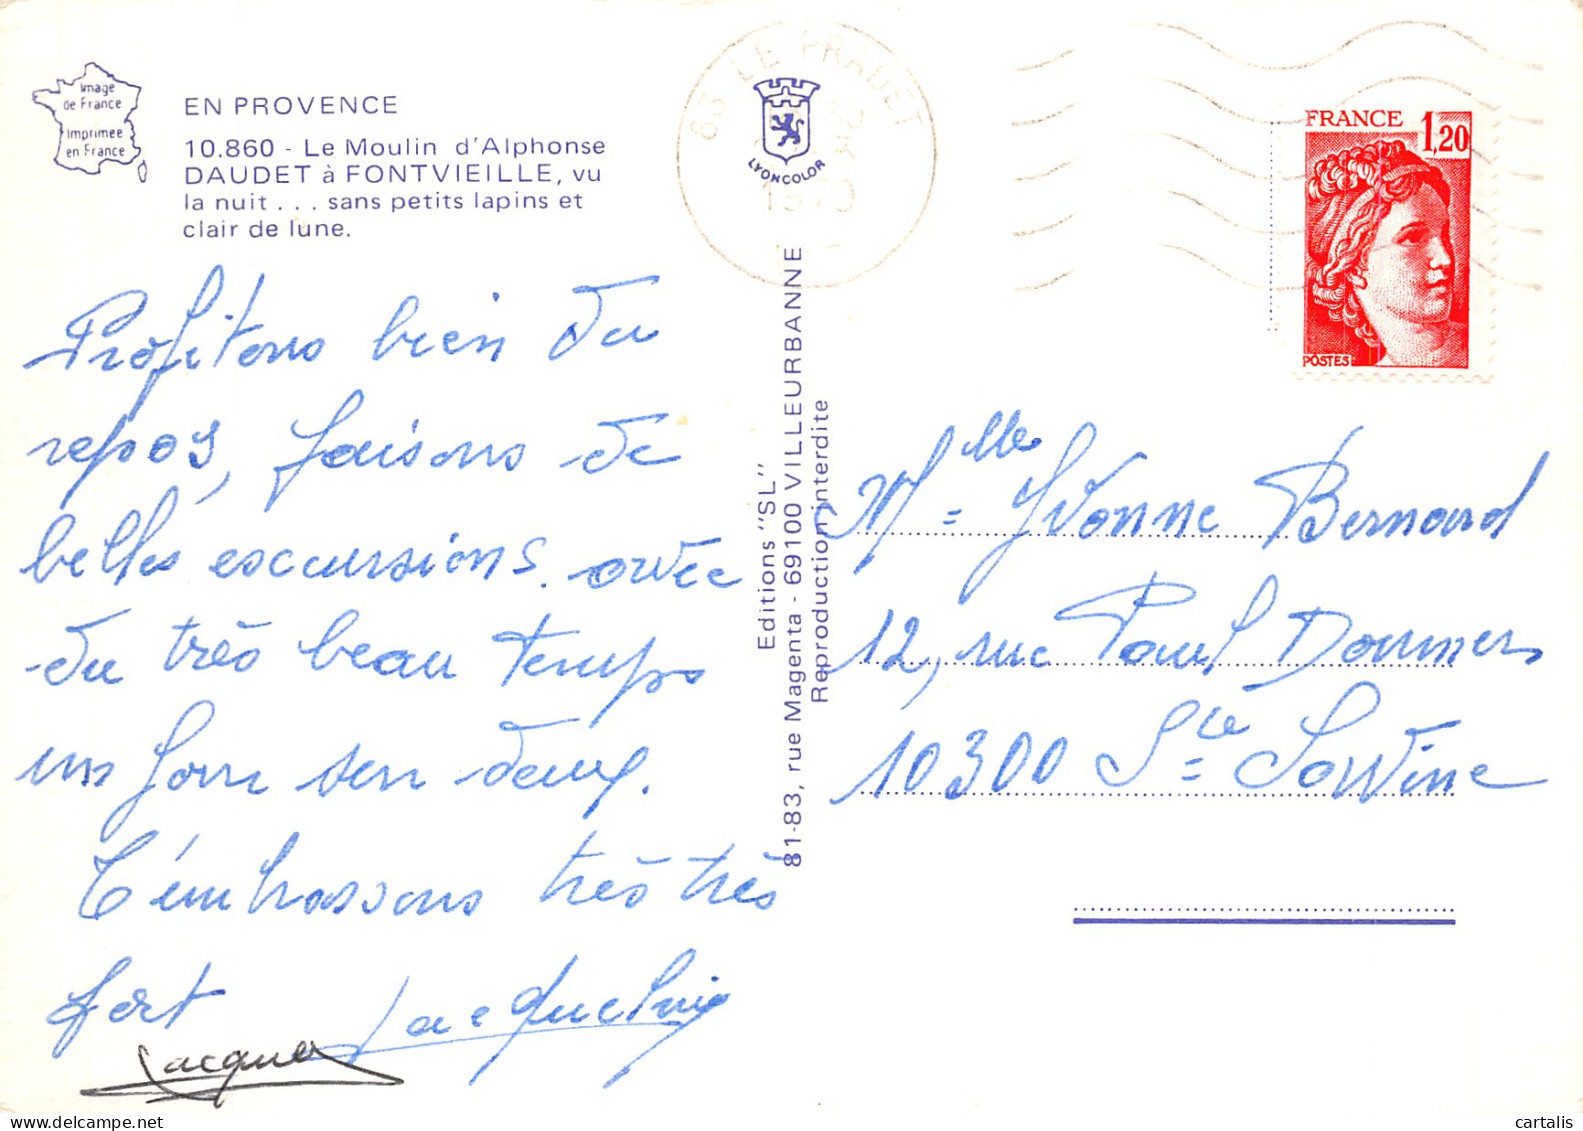 Image
de France
Imprimée
en France
EN PROVENCE
10.860 - Le Moulin d'Alphonse
DAUDET à FONTVIEILLE, vu
la nuit . . . sans petits lapins et
clair de lune.
Profitons bien du
repos, faisons de
belles escursions. avec
du très beau temps
un jour sur deux.
T'embrassons très très
fort
Jacqueline
Jacques
83 LE PRADET
LYONCOLOR
Editions "SL"
81-83, rue Magenta - 69100 VILLEURBANNE
Reproduction interdite
FRANCE
1,20
POSTES
Mlle Yvonne Bernard
12, rue Paul Doumer
10300 Ste Savine
cartalis